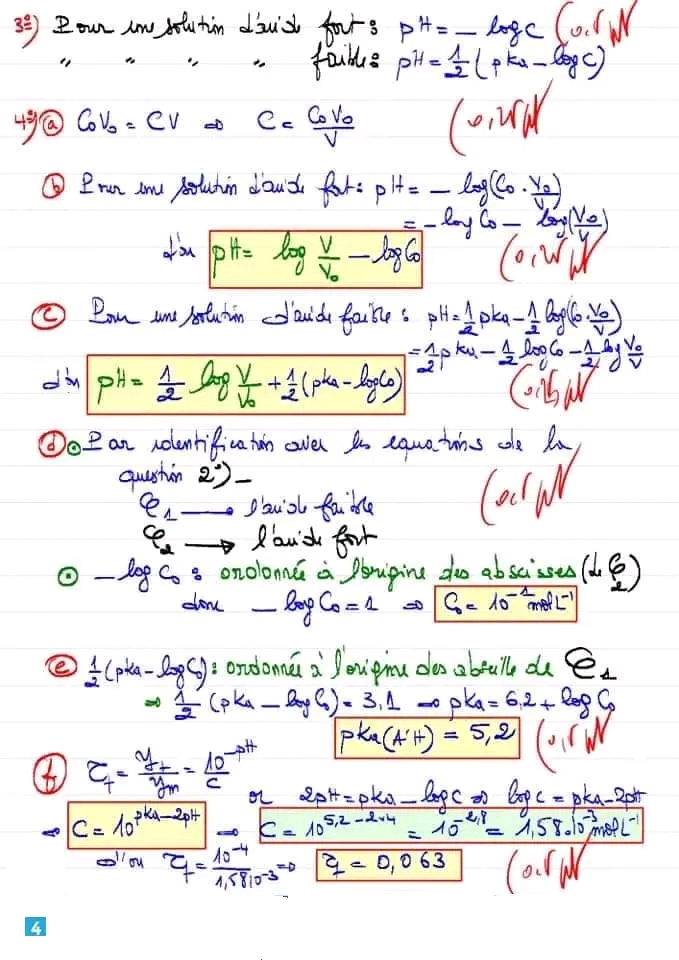 3°) Pour une solution d'acide fort : pH = - log C (0,5 pt)
" " " " faible : pH = 1/2 (pka - log C)
4°) a) C0V0 = CV ⇒ C = C0V0/V (0,25 pt)
b) Pour une solution d'acide fort : pH = - log(C0 · V0/V)
= - log C0 - log(V0/V)
d'où pH = log V/V0 - log C0 (0,25 pt)
c) Pour une solution d'acide faible : pH = 1/2 pka - 1/2 log(C0 · V0/V)
= 1/2 pka - 1/2 log C0 - 1/2 log V0/V
d'où pH = 1/2 log V/V0 + 1/2 (pka - log C0) (0,25 pt)
d) • Par identification avec les equations de la
question 2°) -
C1 → l'acide faible (0,5 pt)
C2 → l'acide fort
• - log C0 : ordonnée à l'origine des abscisses (de C2)
donc - log C0 = 1 ⇒ C0 = 10^-1 mol L^-1
e) 1/2 (pka - log C0) : ordonnée à l'origine des abscisse de C1
⇒ 1/2 (pka - log C0) = 3,1 ⇒ pka = 6,2 + log C0
pka (A'H) = 5,2 (0,5 pt)
f) τf = yf/ym = 10^-pH/C
or 2pH = pka - log C ⇒ log C = pka - 2pH
⇒ C = 10^(pka - 2pH) ⇒ C = 10^(5,2 - 2×4) = 10^-2,8 = 1,58.10^-3 mol L^-1
d'où τf = 10^-4/1,58.10^-3 ⇒ τf = 0,063 (0,5 pt)
4